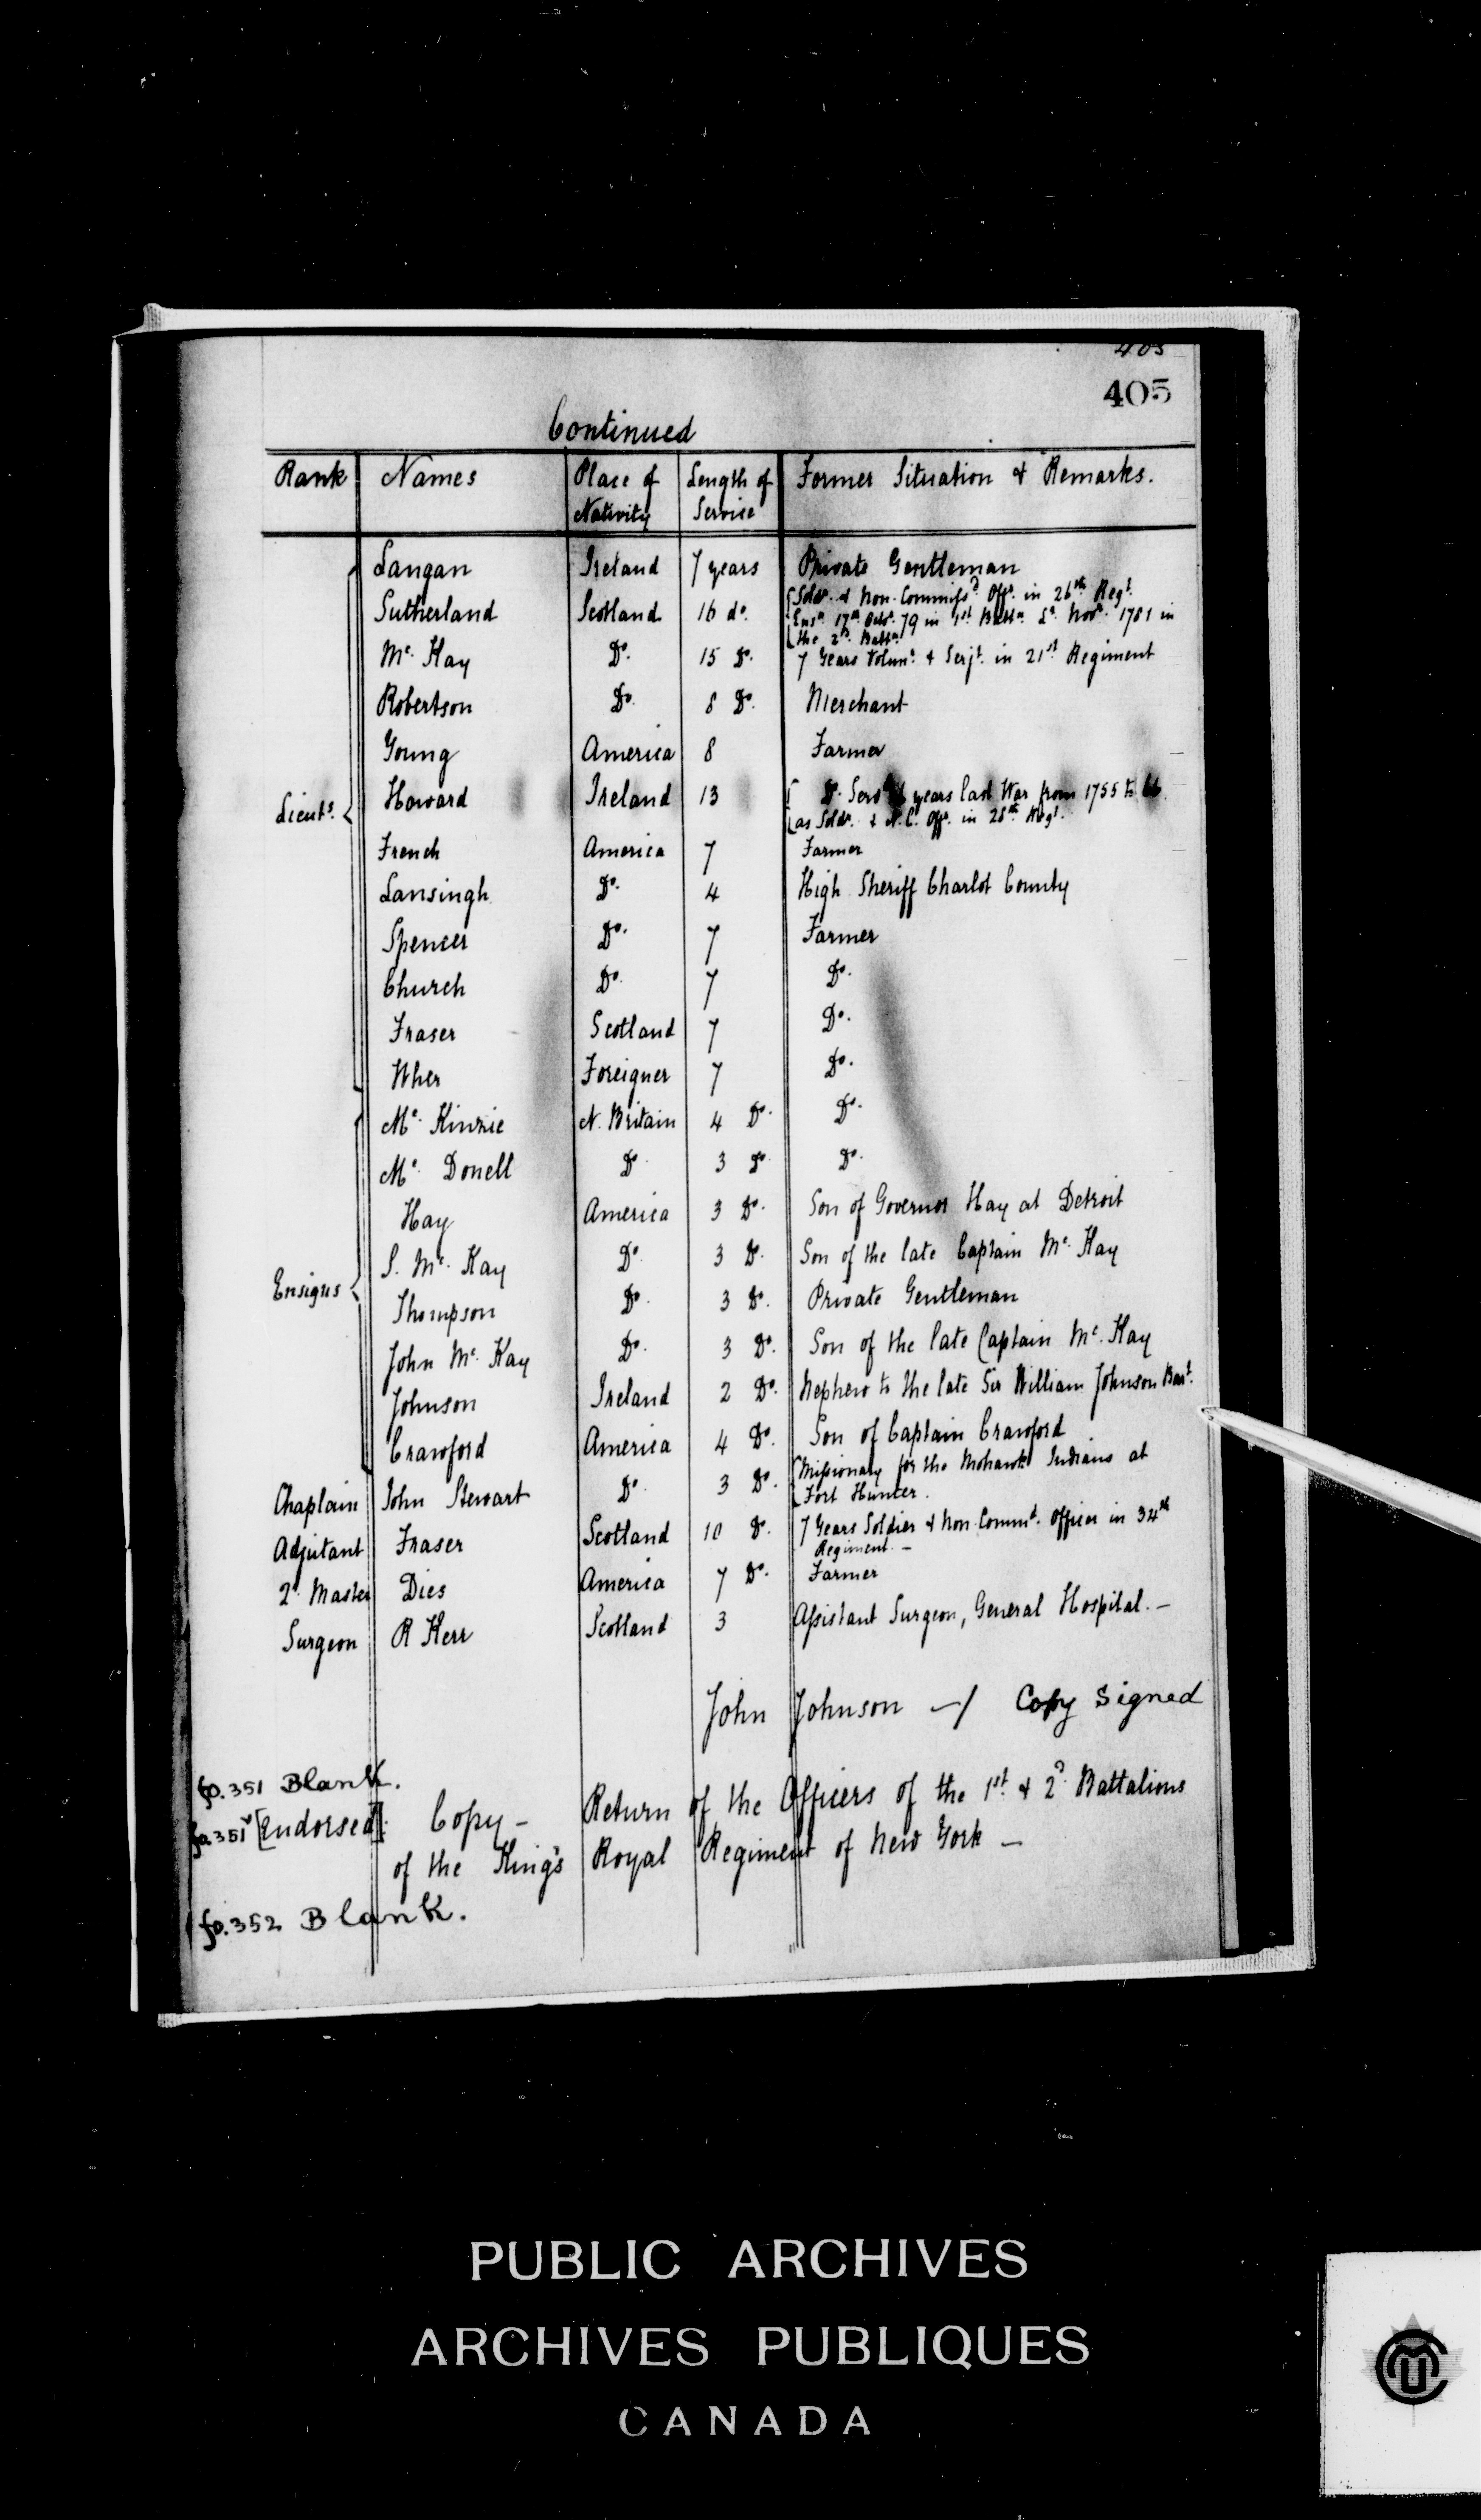 403
405
Continued
Rank Names Place of Nativity Length of Service Former Situation & Remarks.
Langan Ireland 7 years Private Gentleman
Sutherland Scotland 16 do. Soldr. & Non. Commissd. Offr. in 26th Regt.
Ensn. 17th Octr. 79 in 1st Battn. Lt. Novr. 1781 in
the 2d. Battn.
Mc. Kay Do. 15 Do. 7 Years Volunt. & Serjt. in 21st Regiment
Robertson Do. 8 Do. Merchant
Young America 8 Farmer
Lieuts. Howard Ireland 13 Do. Servd years last War from 1755 to 66
as Soldr. & N.C. Offr. in 28th Regt.
French America 7 Farmer
Lansingh Do. 4 High Sheriff Charlot County
Spencer Do. 7 Farmer
Church Do. 7 Do.
Fraser Scotland 7 Do.
Wher Foreigner 7 Do.
Mc. Kinzie N. Britain 4 Do. Do.
Mc. Donell Do 3 Do Do.
Hay America 3 Do. Son of Governor Hay at Detroit
S. Mc. Kay Do 3 Do. Son of the late Captain Mc. Kay
Ensigns Thompson Do. 3 Do. Private Gentleman
John Mc. Kay Do. 3 Do. Son of the late Captain Mc. Kay
Johnson Ireland 2 Do. Nephew to the late Sir William Johnson Bart.
Crawford America 4 Do. Son of Captain Crawford
Chaplain John Stewart Do. 3 Do. Missionary for the Mohawk Indians at
Fort Hunter.
Adjutant Fraser Scotland 10 Do. 7 Years Soldier & Non. Commd. Officer in 34th
Regiment. —
2r. Master Dies America 7 Do. Farmer
Surgeon R Kerr Scotland 3 Assistant Surgeon, General Hospital. —
John Johnson —/ Copy Signed
fo. 351 Blank.
fo. 351v [Endorsed]. Copy — Return of the Officers of the 1st. & 2d. Battalions
of the King's Royal Regiment of New York —
fo. 352 Blank.
PUBLIC ARCHIVES
ARCHIVES PUBLIQUES
CANADA